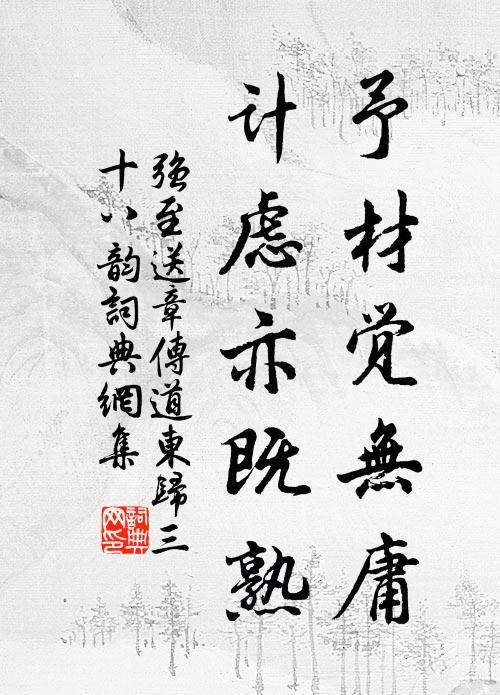 予材觉無庸
计虑亦既熟
强至送章傳道東歸三
十八韵詞典網集
詞典
网印